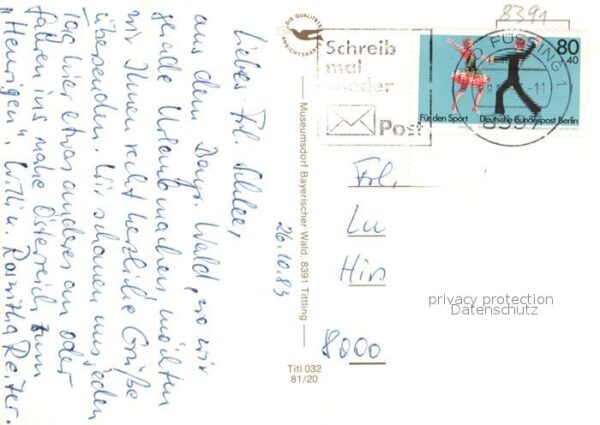 Liebes Frl. Schlee,
aus dem Bayr. Wald, wo wir
gerade Urlaub machen, möchten
wir Ihnen recht herzliche Grüße
übersenden. Wir schauen uns jeden
Tag hier etwas anderes an oder
fahren ins nahe Österreich zum
"Heurigen". Willi u. Roswitha Reiter.
26.10.83
DIE QUALITÄTS
ANSICHTSKARTE
Museumsdorf Bayerischer Wald, 8391 Tittling
Titl 032
81/20
Schreib
mal
wieder
Post
8391
FÜSSING 1
-11
80
+40
Für den Sport
Deutsche Bundespost Berlin
Frl.
Lu
Hirs
8000
privacy protection
Datenschutz